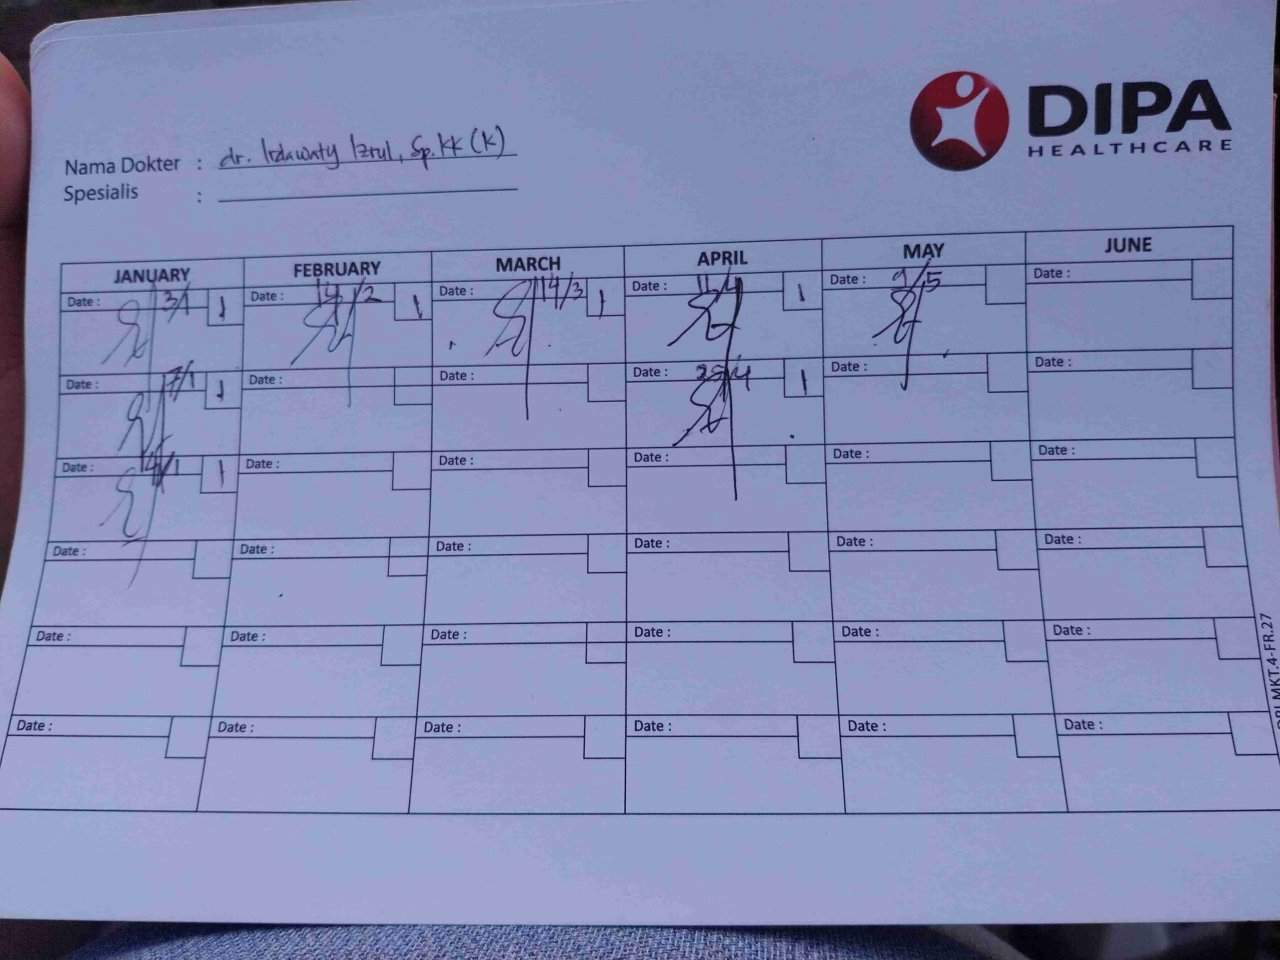 DIPA
HEALTHCARE
Nama Dokter : dr. Irdawaty Izrul, Sp.KK (K)
Spesialis :
JANUARY FEBRUARY MARCH APRIL MAY JUNE
Date : 3/1 1 Date : 14/2 1 Date : 14/3 1 Date : 11/4 1 Date : 9/5 Date :
Date : 7/1 1 Date : Date : Date : 1 Date : Date :
Date : 14/1 1 Date : Date : Date : Date : Date :
Date : Date : Date : Date : Date : Date :
Date : Date : Date : Date : Date : Date :
Date : Date : Date : Date : Date : Date :
MKT.4-FR.27